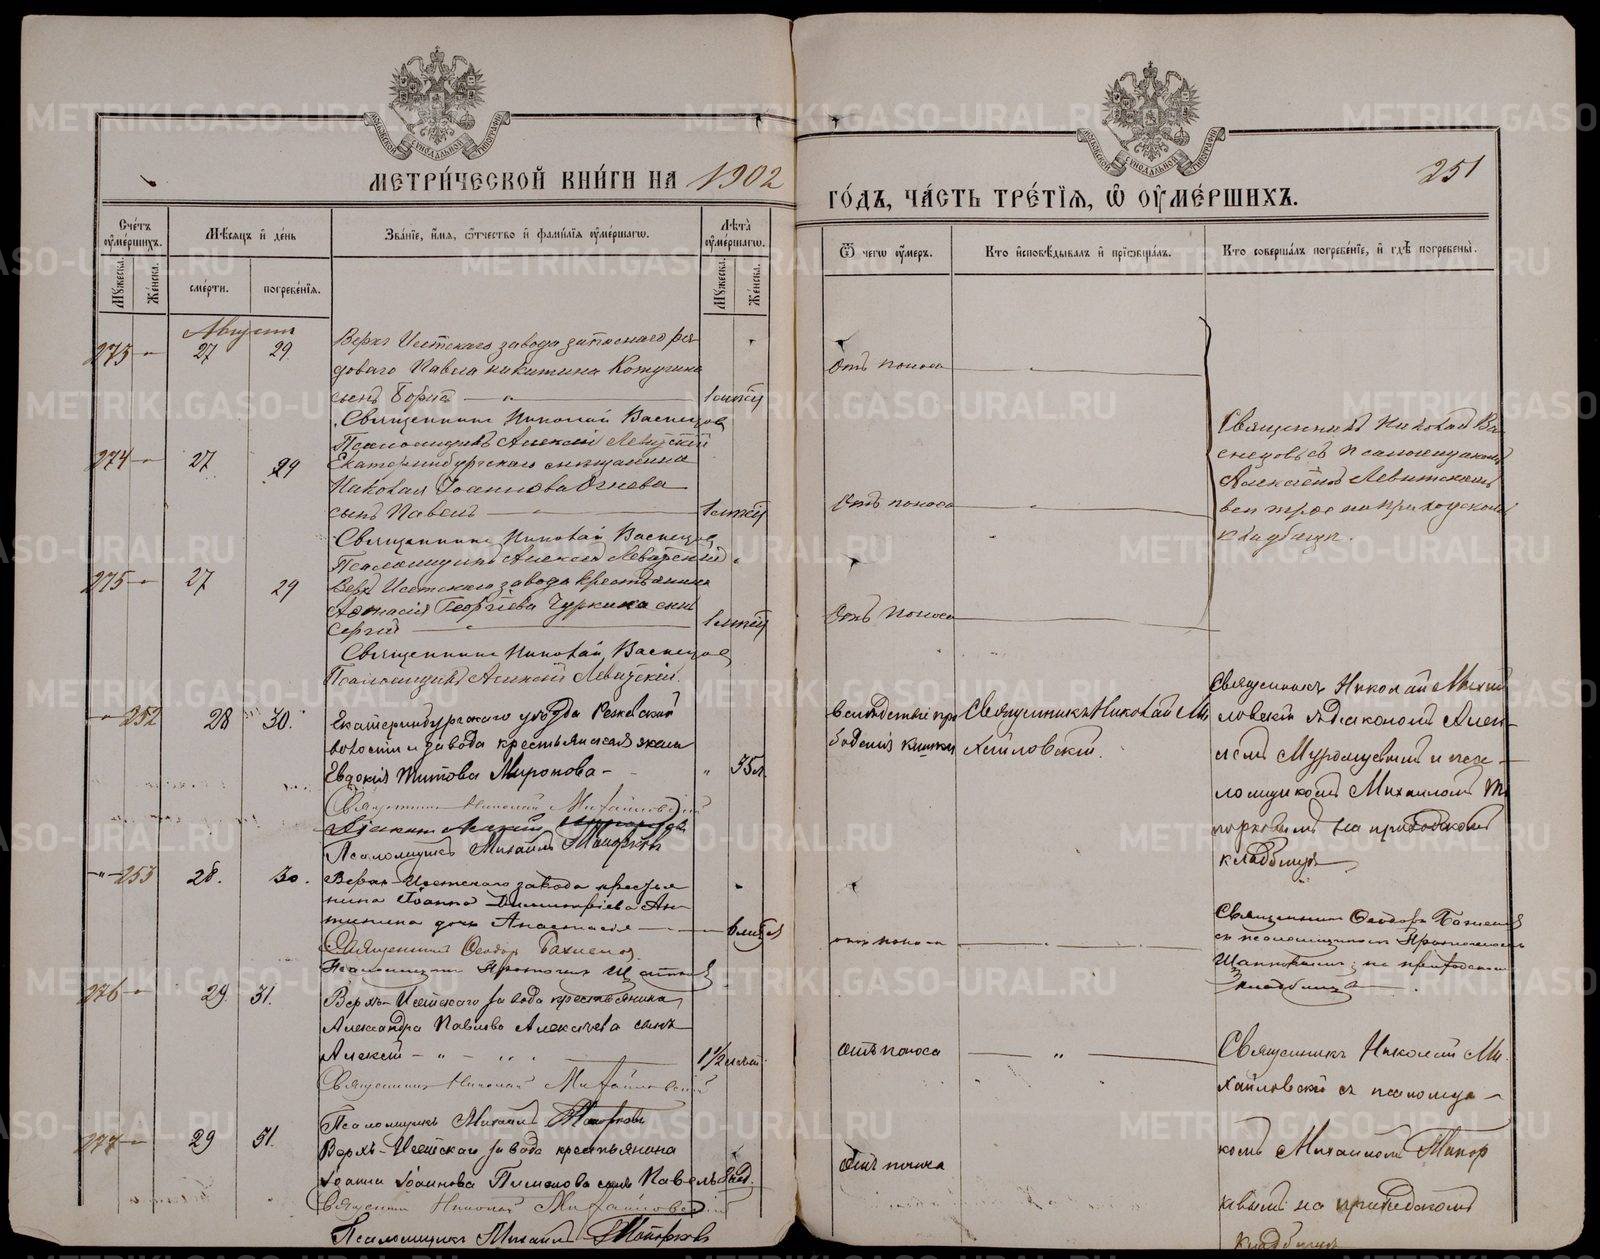 МЕТРИ́ЧЕСКОЙ КНИ́ГИ НА 1902
ГО́ДЪ, ЧА́СТЬ ТРЕ́ТІѦ, Ѡ ОУМЕ́РШИХЪ.
251
Сче́тъ оуме́ршихъ.
Мѣсяцъ и де́нь
Зва́ніе, и́мя, о́тчество и фами́лія оуме́ршагѡ.
Лѣта̀ оуме́ршагѡ.
Ѿ чегѡ̀ оу́меръ.
Кто̀ и̓сповѣ́дывалъ и̓ прїѡбща́лъ.
Кто̀ соверша́лъ погребе́ніе, и̓ гдѣ̀ погребены̀.
Му́жеска.
Же́нска.
сме́рти.
погребе́нїя.
Му́жеска.
Же́нска.
Августъ
273 27 29
Верхъ Исетскаго завода запаснаго ря-
доваго Павла Никитина Кожухина
сынъ Борисъ
Отъ поноса
Священникъ Николай Васнецов
Псаломщикъ Алексій Левитскій
274 27 29
Екатеринбургскаго мещанина
Николая Іоаннова Огнева
сынъ Павелъ
Отъ поноса
Священникъ Николай Ва-
снецовъ съ псаломщикомъ
Алексіемъ Левитскимъ
всѣ трое на приходскомъ
кладбищѣ.
Священникъ Николай Васнецов
Псаломщикъ Алексій Левитскій
275 27 29
Верх Исетскаго завода крестьянина
Афанасія Георгіева Чуркина сынъ
Сергій
Отъ поноса
Священникъ Николай Васнецов
Псаломщикъ Алексій Левитскій.
252 28 30.
Екатеринбургскаго уѣзда Режевской
волости и завода крестьянская жена
Евдокія Титова Миронова
35 л.
Священникъ Николай Ми-
хайловскій
Священникъ Николай Михай
ловскій съ діакономъ Алек-
сѣемъ и пса-
ломщикомъ Михаиломъ То
порковымъ на приходскомъ
кладбищѣ
Священникъ Николай Михайловскій
Псаломщикъ Михаилъ Топорковъ
253 28. 30.
Верхъ-Исетскаго завода крестья
нина Іоанна Димитріева Ан-
типина дочь Анастасія
отъ поноса
Священникъ Ѳеодоръ
съ псаломщикомъ
на приходскомъ
кладбищѣ
Священникъ Ѳеодоръ
Псаломщикъ
276 29 31.
Верхъ-Исетскаго завода крестьянина
Александра Павлова Алексѣева сынъ
Алексій
1 1/2 мѣс.
отъ поноса
Священникъ Николай Ми-
хайловскій съ псаломщи-
комъ Михаиломъ Топор
ковымъ на приходскомъ
кладбищѣ
Священникъ Николай Михайловскій
Псаломщикъ Михаилъ Топорковъ
277 29 31.
Верхъ-Исетскаго завода крестьянина
Іоанна Іоаннова Пименова сынъ Павелъ
Отъ поноса
Священникъ Николай Михайловскій
Псаломщикъ Михаилъ Топорковъ
METRIKI.GASO-URAL.RU